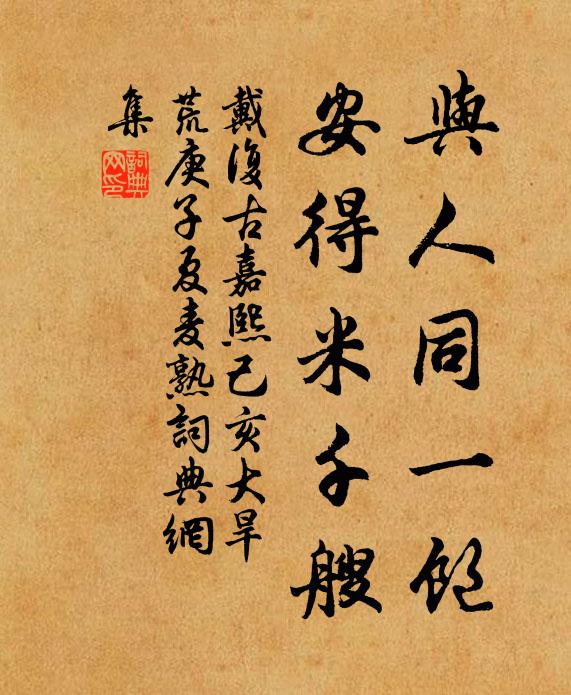 與人同一飽
安得米千艘
戴復古嘉熙己亥大旱
荒庚子夏麥熟詞典網
集
詞典
网印